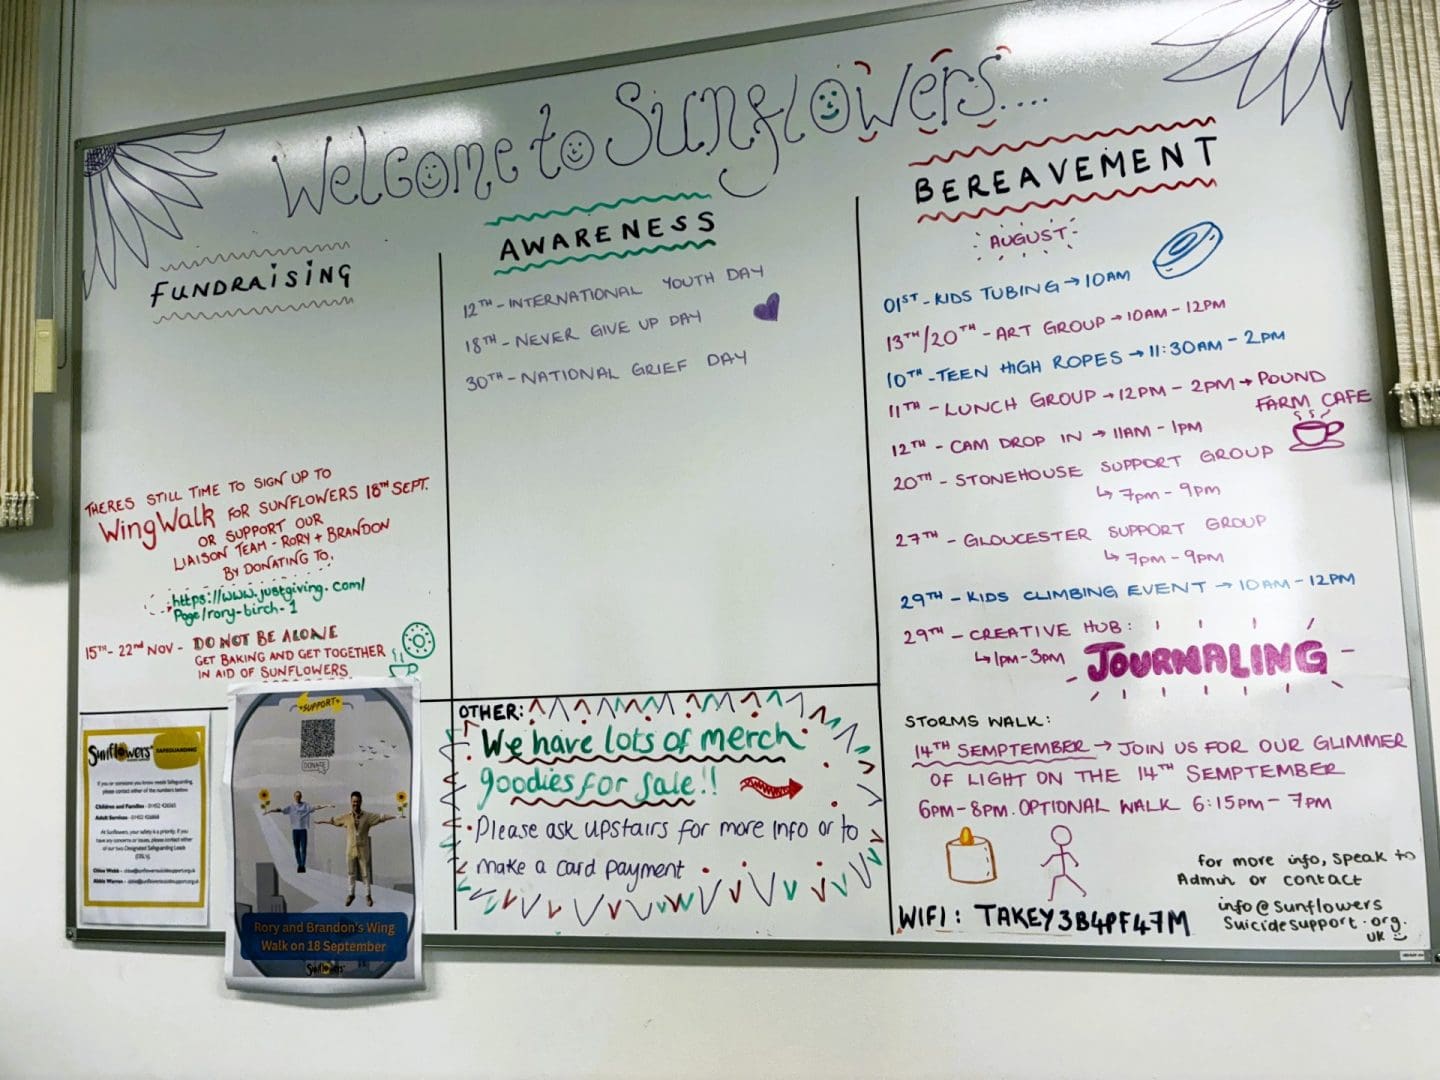 Welcome to Sunflowers....
FUNDRAISING
THERES STILL TIME TO SIGN UP TO
WingWalk FOR SUNFLOWERS 18TH SEPT.
OR SUPPORT OUR
LIAISON TEAM - RORY + BRANDON
BY DONATING TO.
https://www.justgiving.com/
Page/rory-birch-1
15TH - 22ND NOV - DO NOT BE ALONE
GET BAKING AND GET TOGETHER
IN AID OF SUNFLOWERS
Sunflowers SAFEGUARDING
If you or someone you know needs Safeguarding,
please contact either of the numbers below
Children and Families - 01452 426565
Adult Services - 01452 426868
At Sunflowers, your safety is a priority. If you
have any concerns or issues, please contact either
of our two Designated Safeguarding Leads
(DSL's).
Chloe Webb -
Abbie Warren -
SUPPORT
DONATE
Rory and Brandon's Wing
Walk on 18 September
Sunflowers
AWARENESS
12TH - INTERNATIONAL YOUTH DAY
18TH - NEVER GIVE UP DAY
30TH - NATIONAL GRIEF DAY
OTHER:
We have lots of merch
goodies for sale!!
Please ask upstairs for more info or to
make a card payment
BEREAVEMENT
AUGUST
01ST - KIDS TUBING → 10AM
13TH/20TH - ART GROUP → 10AM - 12PM
10TH - TEEN HIGH ROPES → 11:30AM - 2PM
11TH - LUNCH GROUP → 12PM - 2PM → POUND
FARM CAFE
12TH - CAM DROP IN → 11AM - 1PM
20TH - STONEHOUSE SUPPORT GROUP
↳ 7PM - 9PM
27TH - GLOUCESTER SUPPORT GROUP
↳ 7PM - 9PM
29TH - KIDS CLIMBING EVENT → 10AM - 12PM
29TH - CREATIVE HUB:
↳ 1PM - 3PM JOURNALING
STORMS WALK:
14TH SEMPTEMBER → JOIN US FOR OUR GLIMMER
OF LIGHT ON THE 14TH SEMPTEMBER
6PM - 8PM. OPTIONAL WALK 6:15PM - 7PM
for more info, speak to
Admin or contact
info@sunflowers
suicidesupport.org.
uk
WIFI: TAKEY3B4PF47M